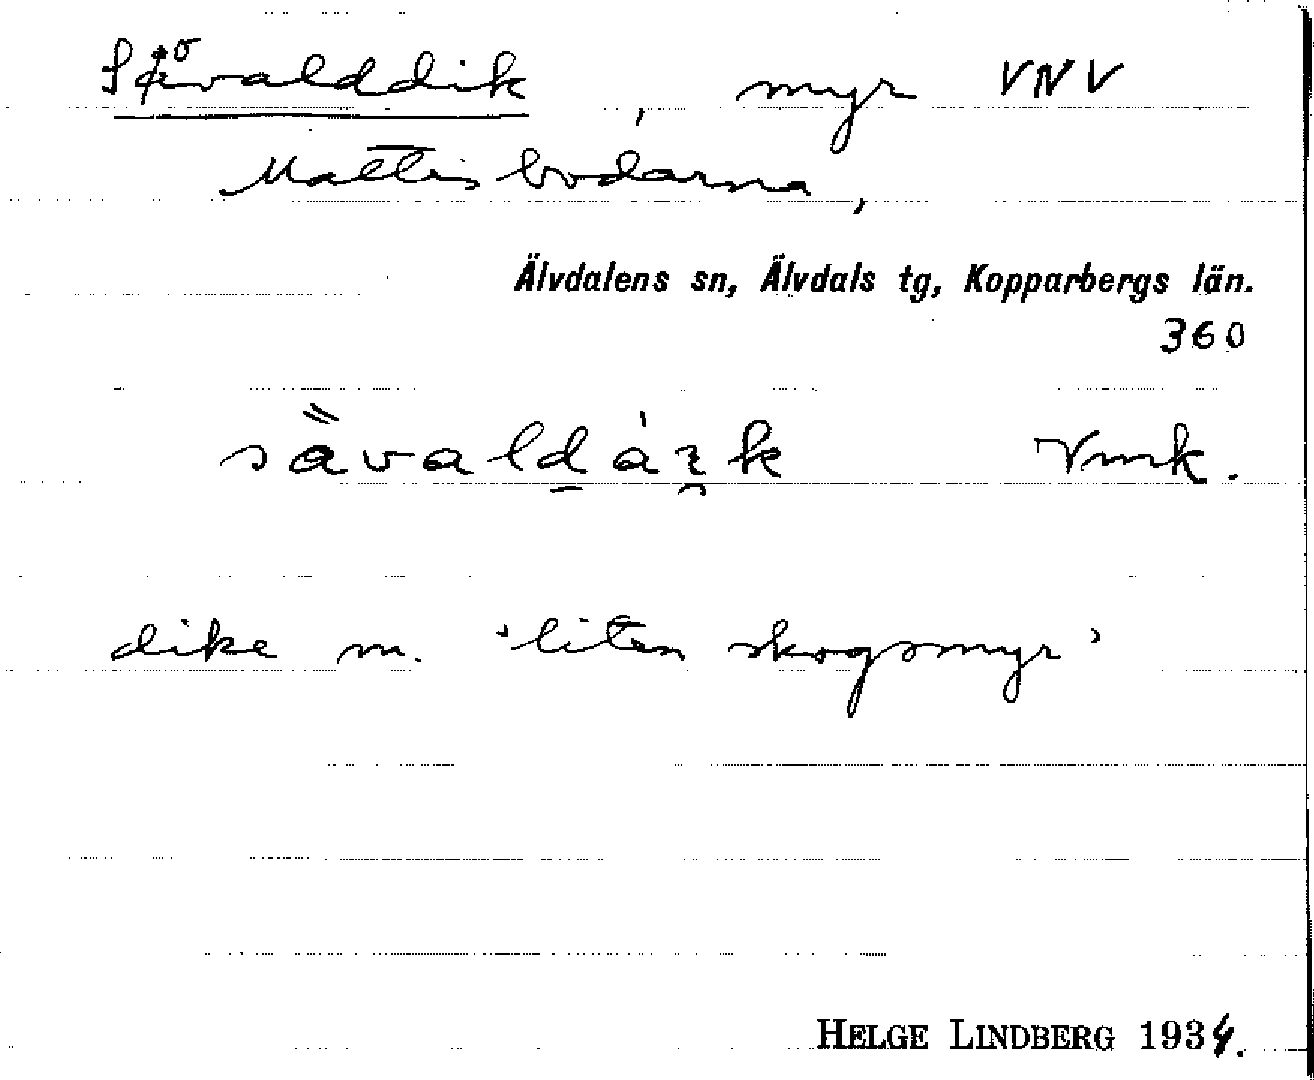 Sjövalddik, myr VNV
Mattisbodarna,
Älvdalens sn, Älvdals tg, Kopparbergs län.
360
Vmk.
dike m. 'liten skogsmyr'
HELGE LINDBERG 1934.